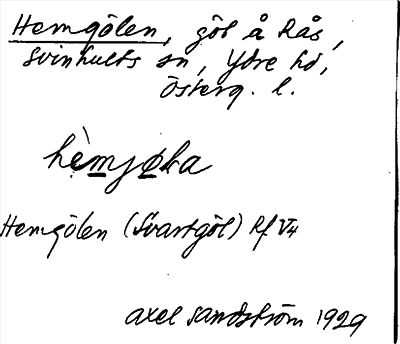 Hemgölen, göl å Rås,
Svinhults sn, Ydre hd,
Österg. l.
hèmjøka
Hemgölen (Svartgöl) Rf V4
Axel Sandström 1929